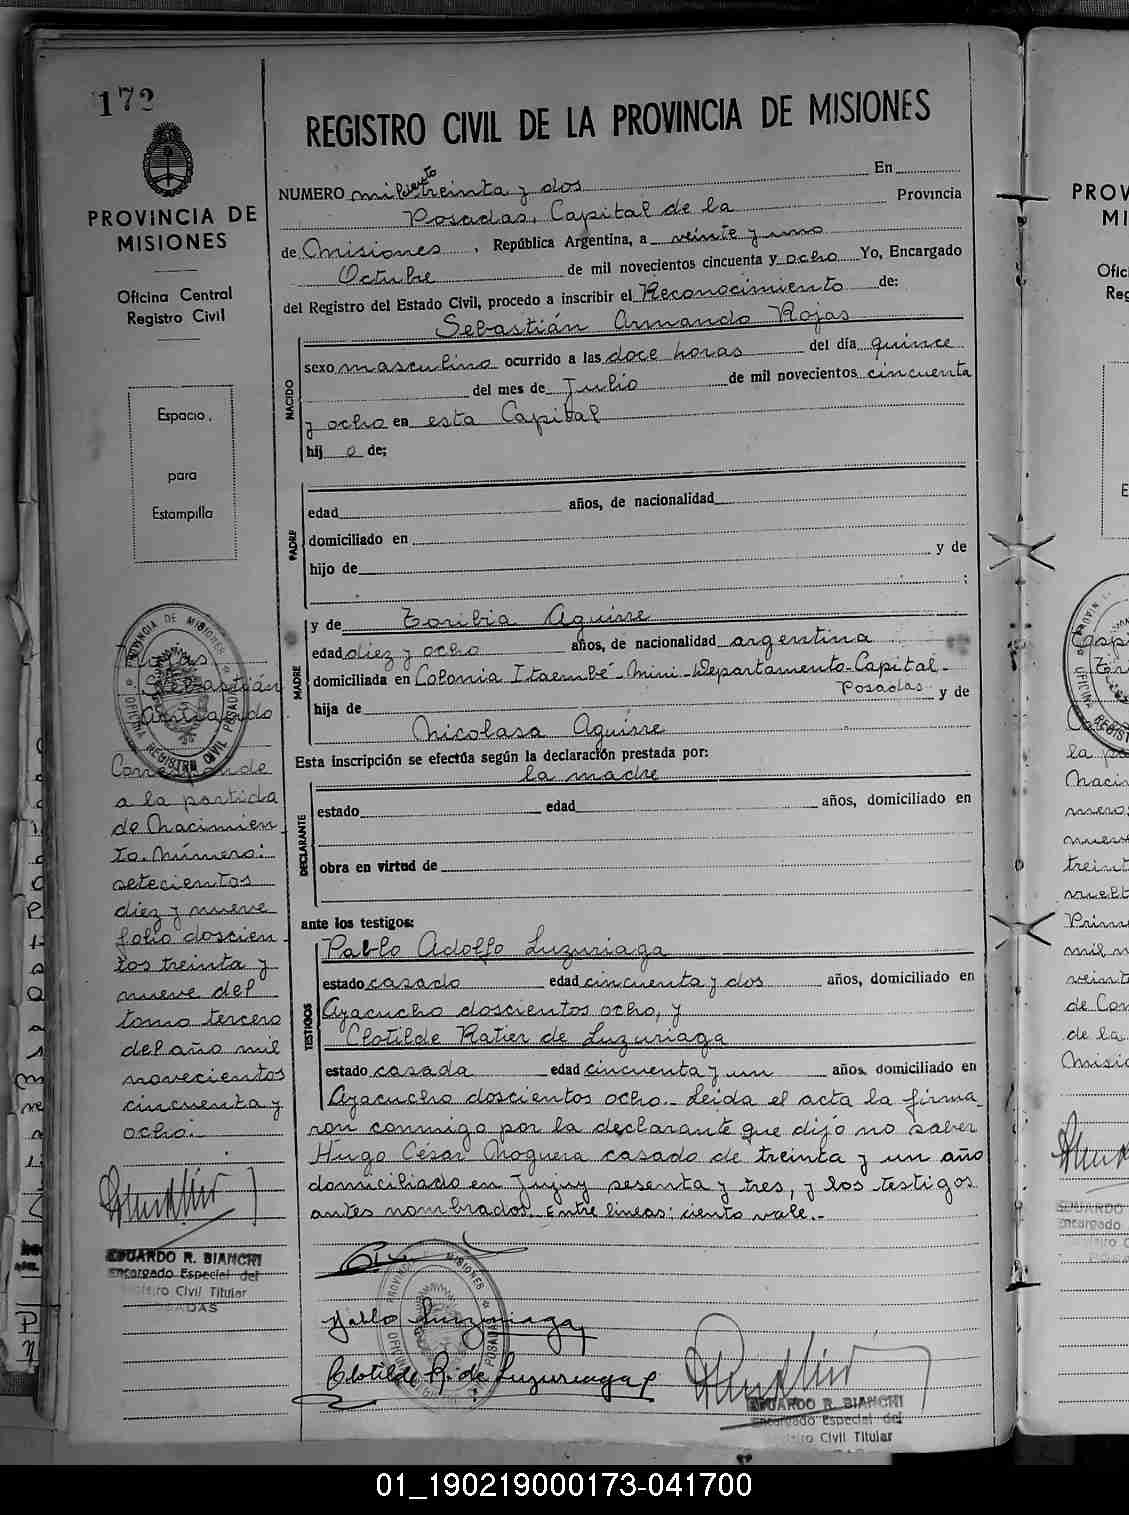 172
PROVINCIA DE
MISIONES
Oficina Central
Registro Civil
Espacio
para
Estampilla
Rojas
Sebastián
Armando
Corresponde
a la partida
de Nacimien
to. Número:
setecientos
diez y nueve
folio doscien
tos treinta y
nueve del
tomo tercero
del año mil
novecientos
cincuenta y
ocho.-
EDUARDO R. BIANCHI
Encargado Especial del
Registro Civil Titular
POSADAS
REGISTRO CIVIL DE LA PROVINCIA DE MISIONES
NUMERO mil ciento treinta y dos En
Posadas, Capital de la Provincia
de Misiones, República Argentina, a veinte y uno
Octubre de mil novecientos cincuenta y ocho Yo, Encargado
del Registro del Estado Civil, procedo a inscribir el Reconocimiento de:
Sebastián Armando Rojas
NACIDO
sexo masculino ocurrido a las doce horas del día quince
del mes de Julio de mil novecientos cincuenta
y ocho en esta Capital
hij o de;
PADRE
edad años, de nacionalidad
domiciliado en
hijo de y de
;
MADRE
y de Toribia Aguirre
edad diez y ocho años, de nacionalidad argentina
domiciliada en Colonia Itaembé-Mini-Departamento-Capital-
hija de Posadas y de
Nicolasa Aguirre
Esta inscripción se efectúa según la declaración prestada por:
la madre
DECLARANTE
estado edad años, domiciliado en
obra en virtud de
ante los testigos:
TESTIGOS
Pablo Adolfo Luzuriaga
estado casado edad cincuenta y dos años, domiciliado en
Ayacucho doscientos ocho, y
Clotilde Ratier de Luzuriaga
estado casada edad cincuenta y un años, domiciliado en
Ayacucho doscientos ocho.- Leida el acta la firma
ron conmigo por la declarante que dijo no saber
Hugo César Noguera casado de treinta y un año
domiciliado en Jujuy sesenta y tres, y los testigos
antes nombrados. Entre lineas: ciento vale.-
Pablo Luzuriaga
Clotilde R. de Luzuriaga
EDUARDO R. BIANCHI
Encargado Especial del
Registro Civil Titular
01_190219000173-041700